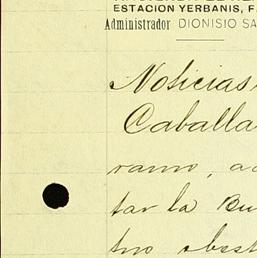 ESTACION YERBANIS, F.
Administrador DIONISIO SA
Noticias
Caballa
ramo, ac
tar la Bu
tno obst